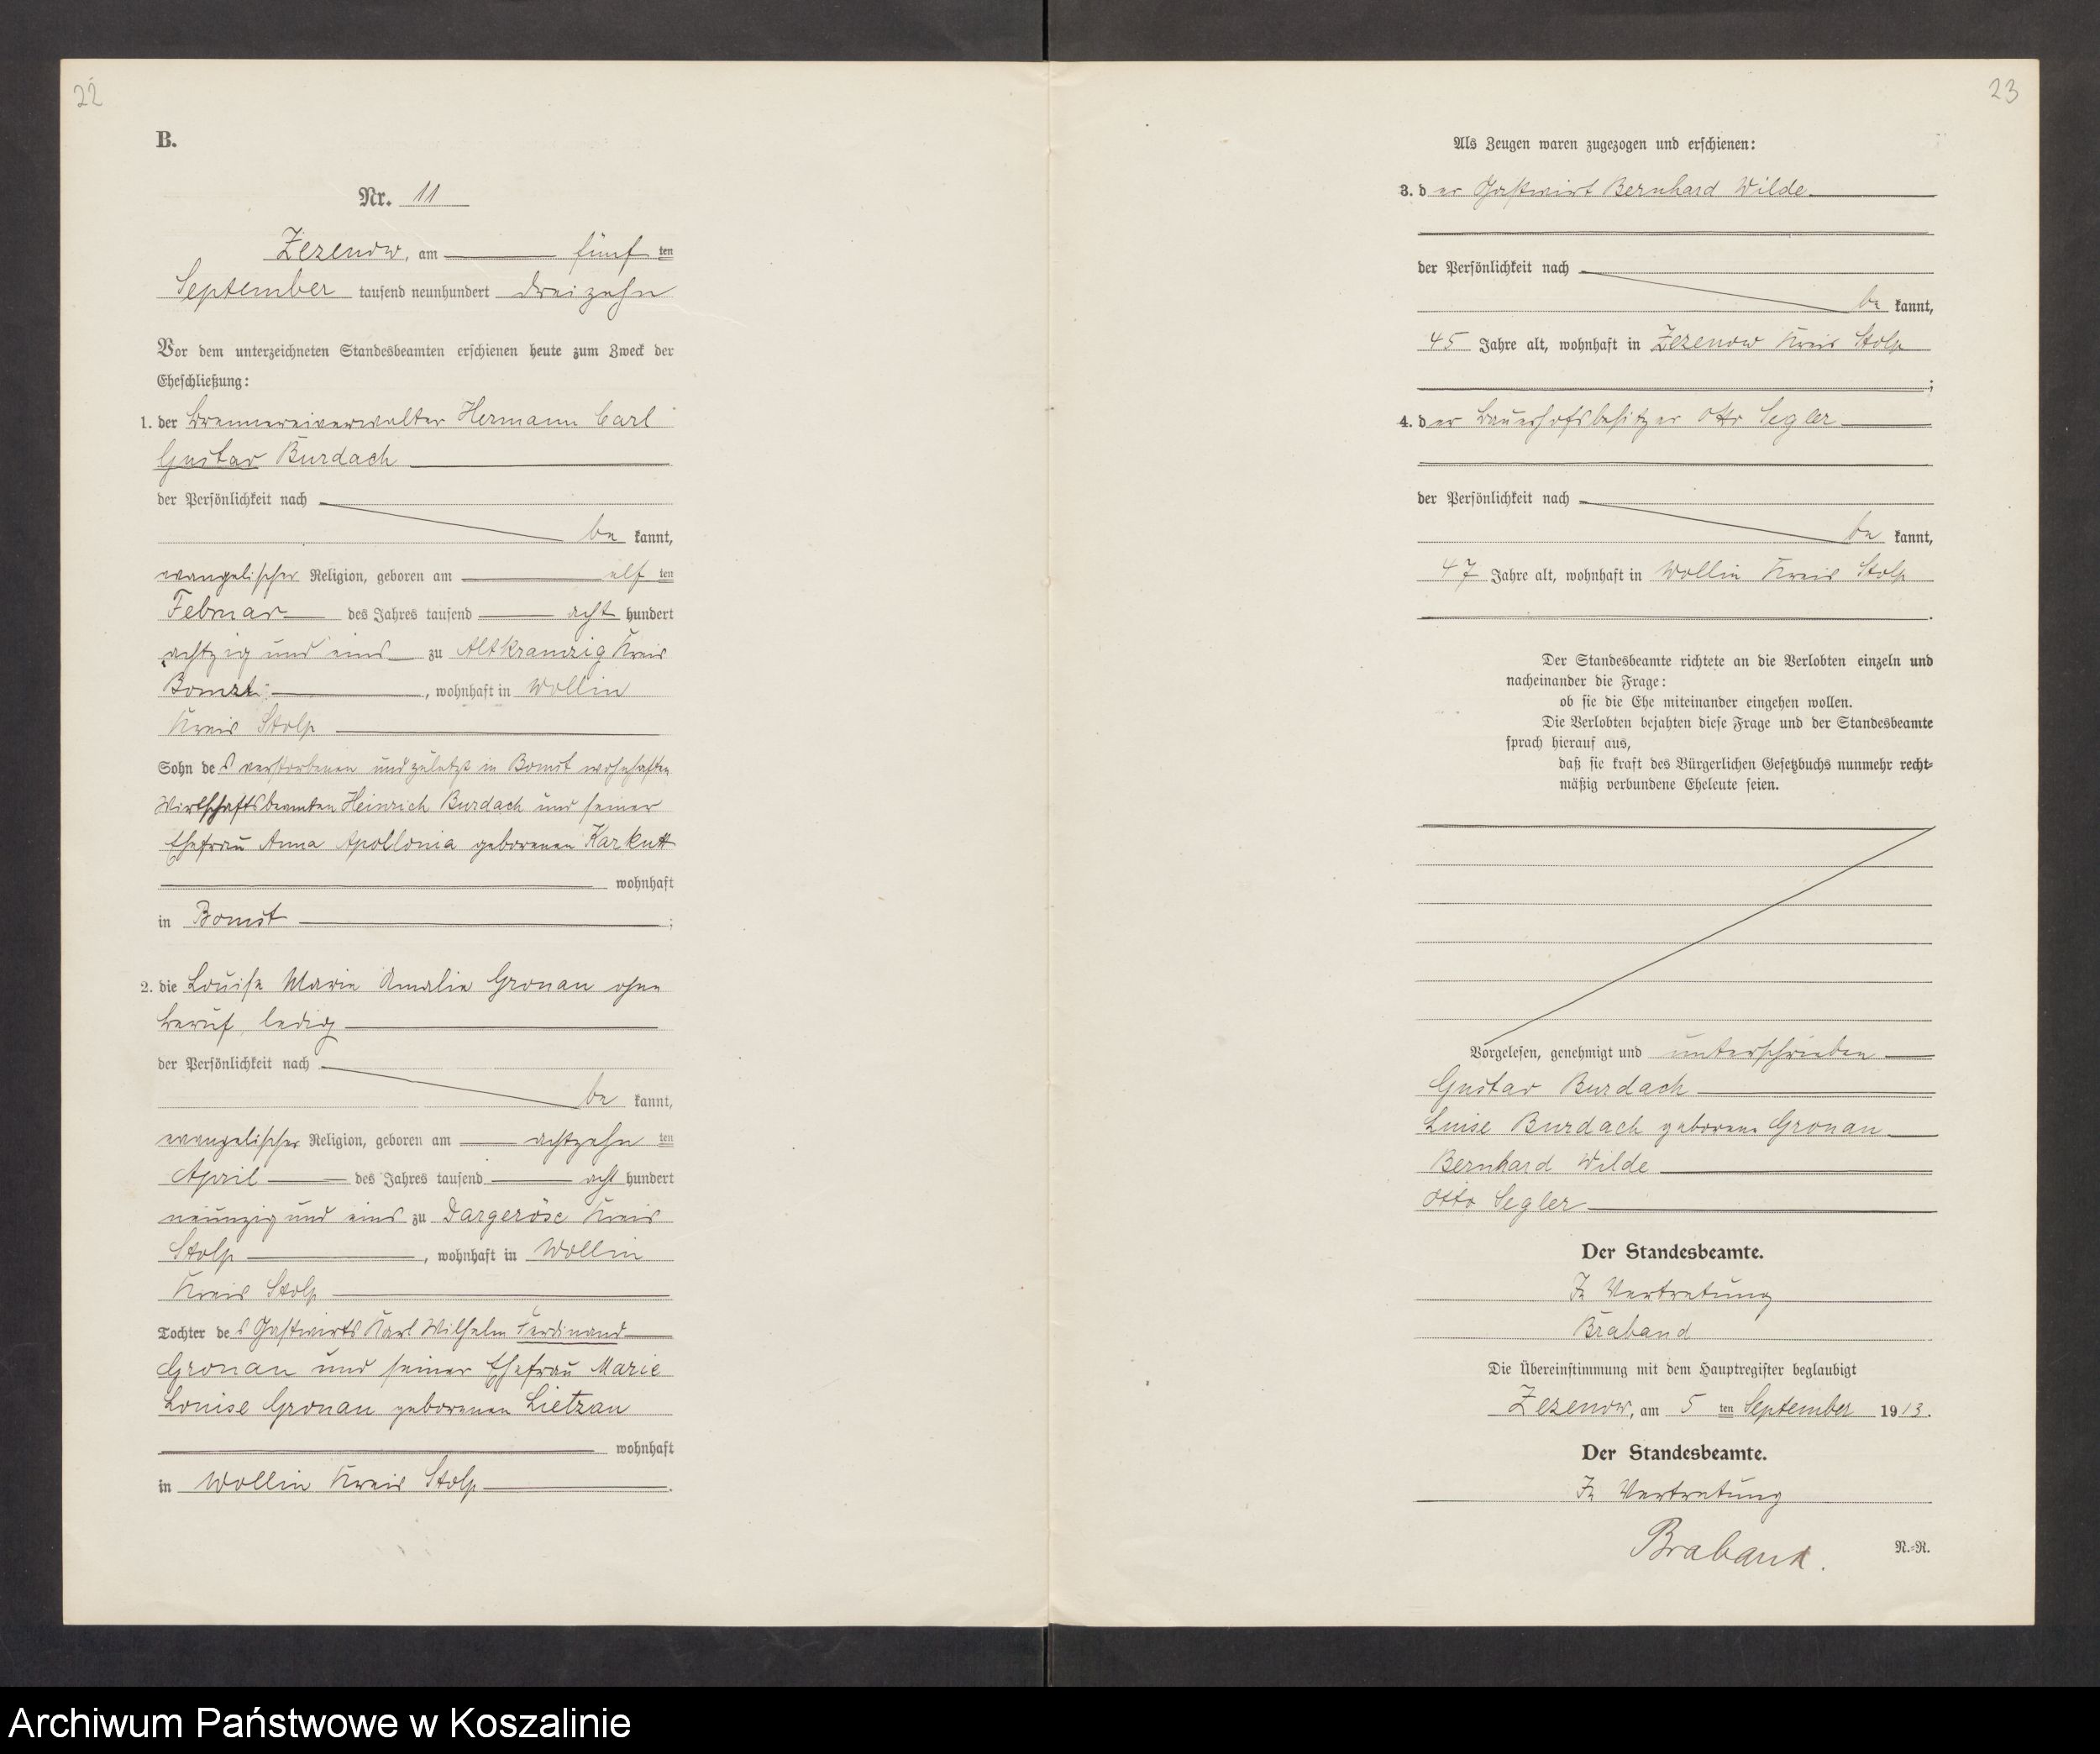 22
B.
Nr. 11
Zezenow, am fünf ten
September tausend neunhundert dreizehn
Vor dem unterzeichneten Standesbeamten erschienen heute zum Zweck der
Eheschließung:
1. der Brennereiverwalter Hermann Carl
Gustav Burdach
der Persönlichkeit nach
be kannt,
evangelischer Religion, geboren am elf ten
Februar des Jahres tausend acht hundert
achtzig und eins zu Altkramzig Kreis
Bomst, wohnhaft in Wollin
Kreis Stolp
Sohn des verstorbenen und zuletzt in Bomst wohnhaften
Wirtschaftsbeamten Heinrich Burdach und seiner
Ehefrau Anna Apollonia geborenen Karkutt
wohnhaft
in Bomst;
2. die Louise Marie Amalie Gronau ohne
Beruf, ledig
der Persönlichkeit nach
be kannt,
evangelischer Religion, geboren am achtzehn ten
April des Jahres tausend acht hundert
neunzig und eins zu Dargeröse Kreis
Stolp, wohnhaft in Wollin
Kreis Stolp
Tochter des Gastwirts Karl Wilhelm Ferdinand
Gronau und seiner Ehefrau Marie
Louise Gronau geborenen Lietzau
wohnhaft
in Wollin Kreis Stolp.
23
Als Zeugen waren zugezogen und erschienen:
3. der Gastwirt Bernhard Wilde
der Persönlichkeit nach
be kannt,
45 Jahre alt, wohnhaft in Zezenow Kreis Stolp
;
4. der Bauerhofsbesitzer Otto Segler
der Persönlichkeit nach
be kannt,
47 Jahre alt, wohnhaft in Wollin Kreis Stolp
.
Der Standesbeamte richtete an die Verlobten einzeln und
nacheinander die Frage:
ob sie die Ehe miteinander eingehen wollen.
Die Verlobten bejahten diese Frage und der Standesbeamte
sprach hierauf aus,
daß sie kraft des Bürgerlichen Gesetzbuchs nunmehr recht-
mäßig verbundene Eheleute seien.
Vorgelesen, genehmigt und unterschrieben
Gustav Burdach
Luise Burdach geborene Gronau
Bernhard Wilde
Otto Segler
Der Standesbeamte.
In Vertretung
Braband
Die Übereinstimmung mit dem Hauptregister beglaubigt
Zezenow, am 5 ten September 1913.
Der Standesbeamte.
In Vertretung
Braband.
N.-R.
Archiwum Państwowe w Koszalinie